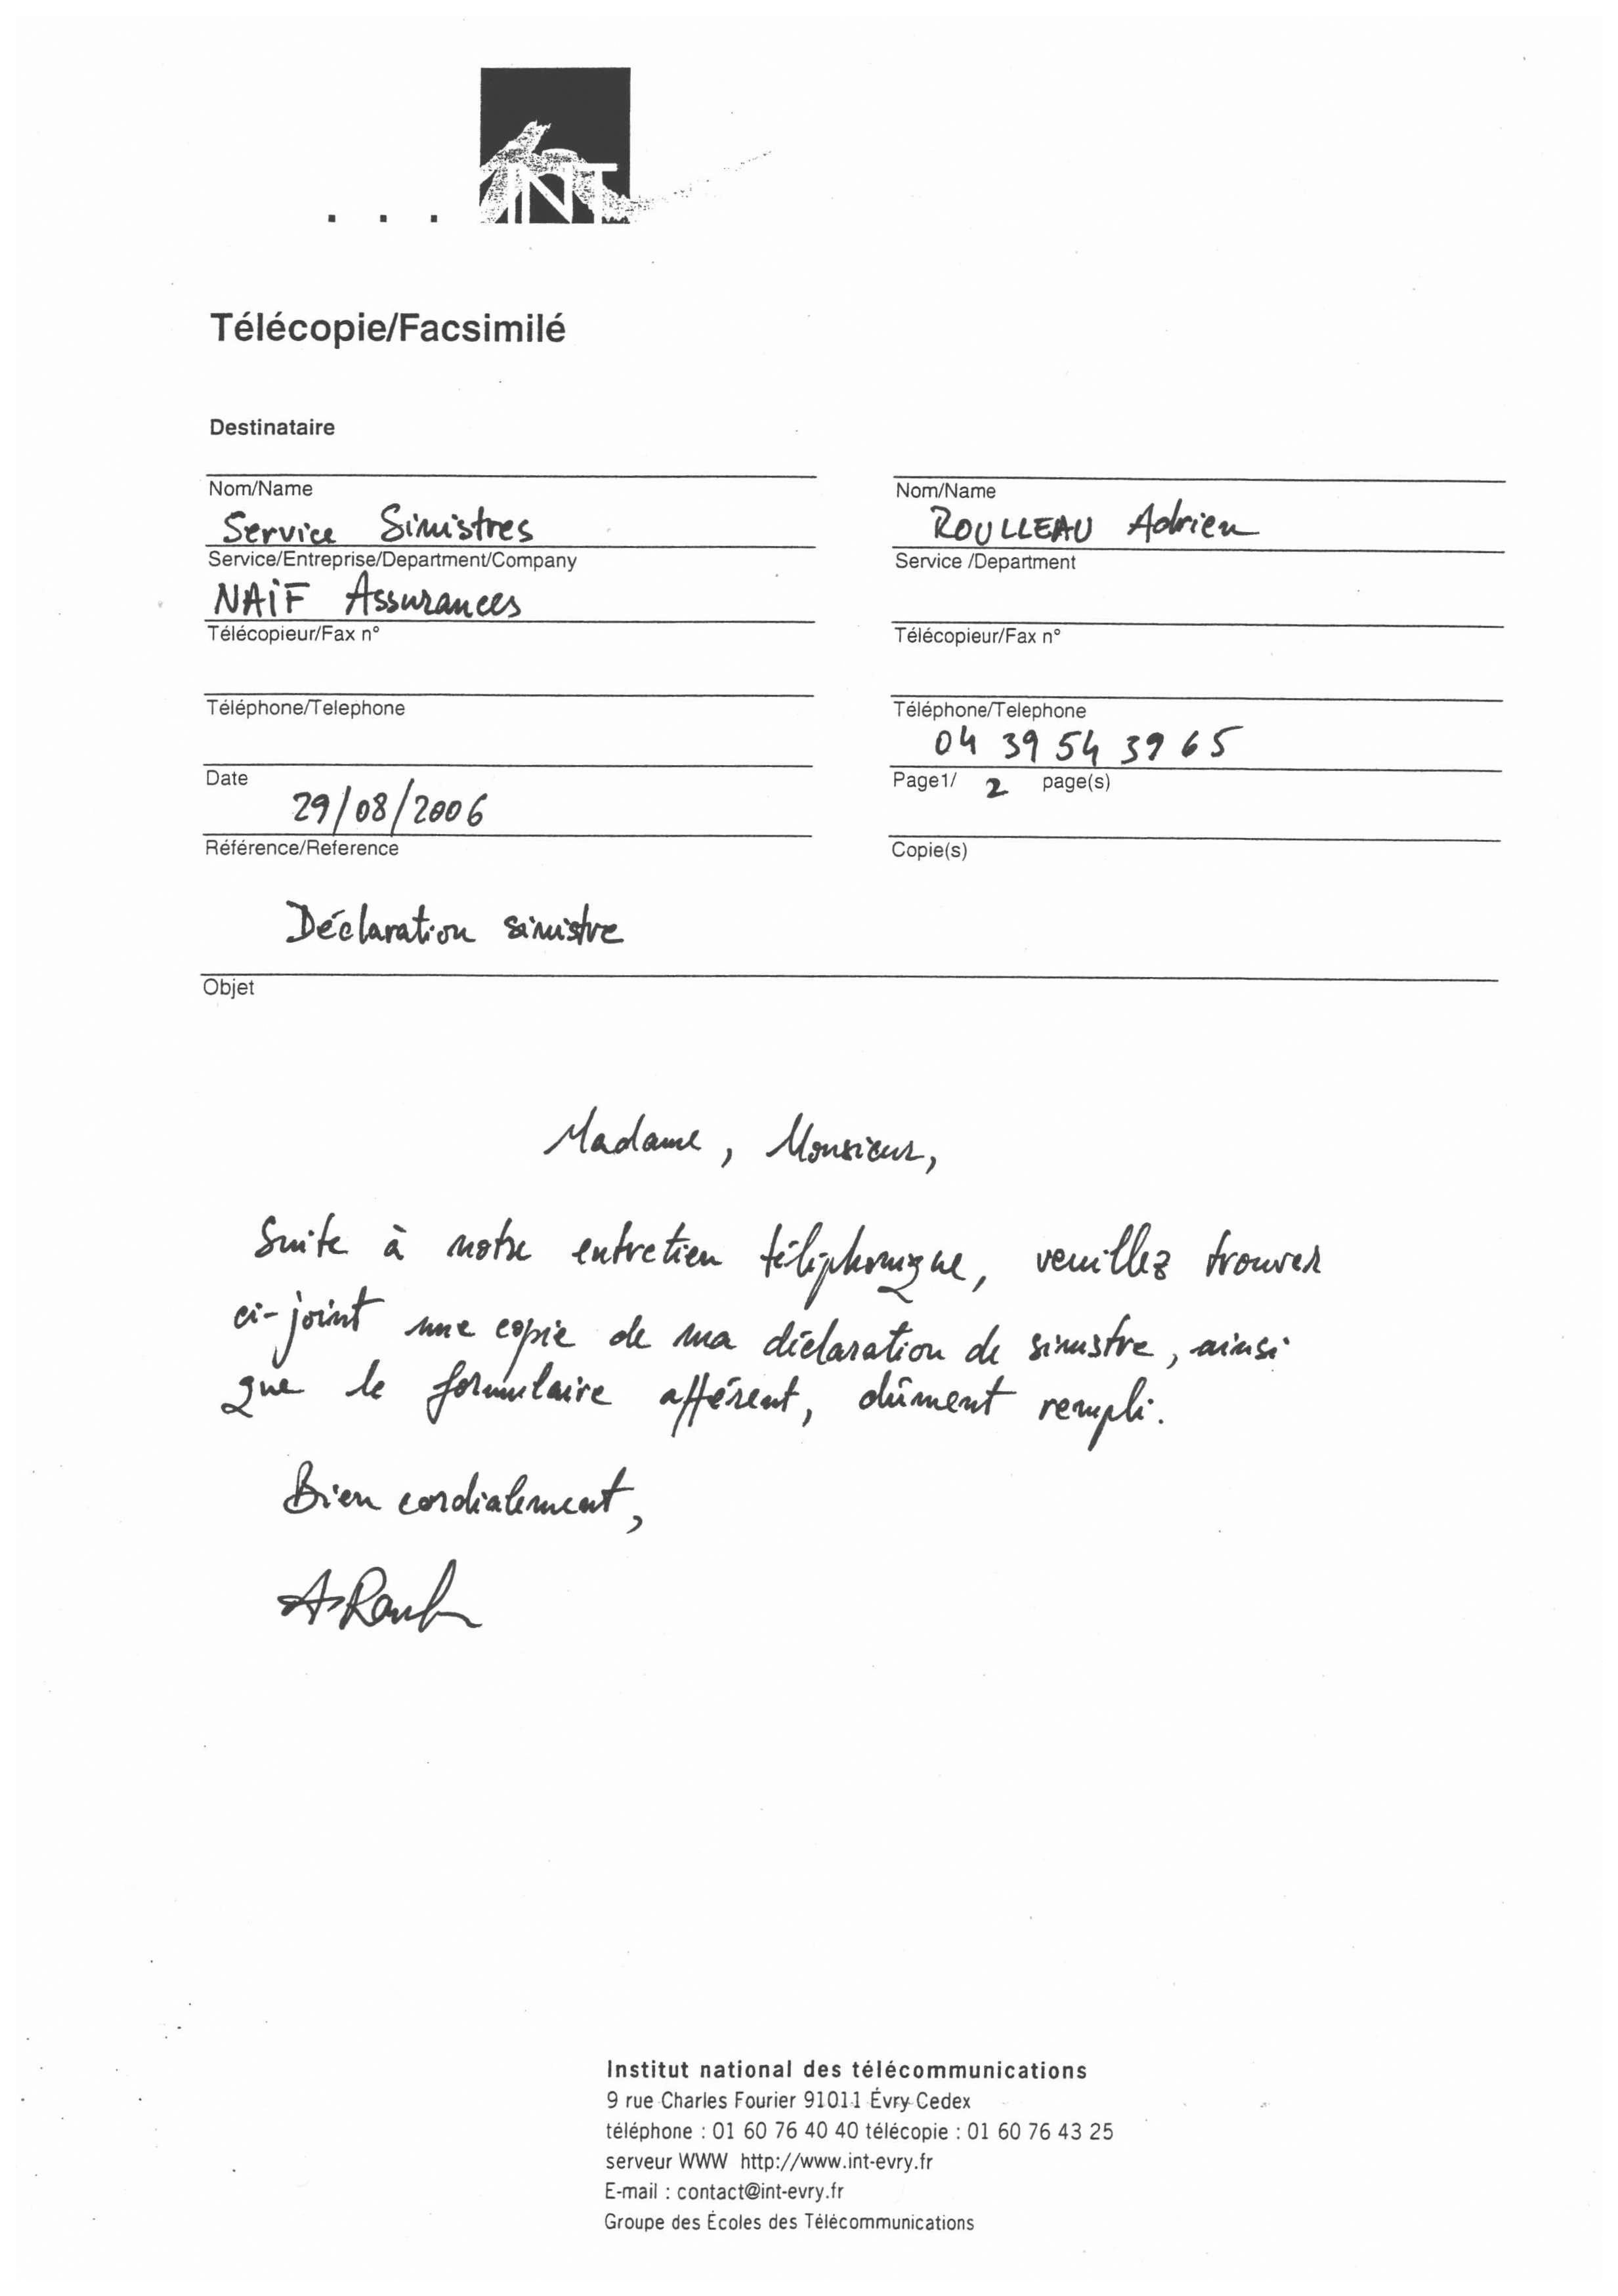 INT
Télécopie/Facsimilé
Destinataire
Nom/Name
Service Sinistres
Service/Entreprise/Department/Company
NAIF Assurances
Télécopieur/Fax n°
Téléphone/Telephone
Date
29/08/2006
Référence/Reference
Nom/Name
ROULLEAU Adrien
Service /Department
Télécopieur/Fax n°
Téléphone/Telephone
04 39 54 39 65
Page1/ 2 page(s)
Copie(s)
Déclaration sinistre
Objet
Madame, Monsieur,
Suite à notre entretien téléphonique, veuillez trouver
ci-joint une copie de ma déclaration de sinistre, ainsi
que le formulaire afférent, dûment rempli.
Bien cordialement,
Institut national des télécommunications
9 rue Charles Fourier 91011 Évry Cedex
téléphone : 01 60 76 40 40 télécopie : 01 60 76 43 25
serveur WWW http://www.int-evry.fr
E-mail : contact@int-evry.fr
Groupe des Écoles des Télécommunications